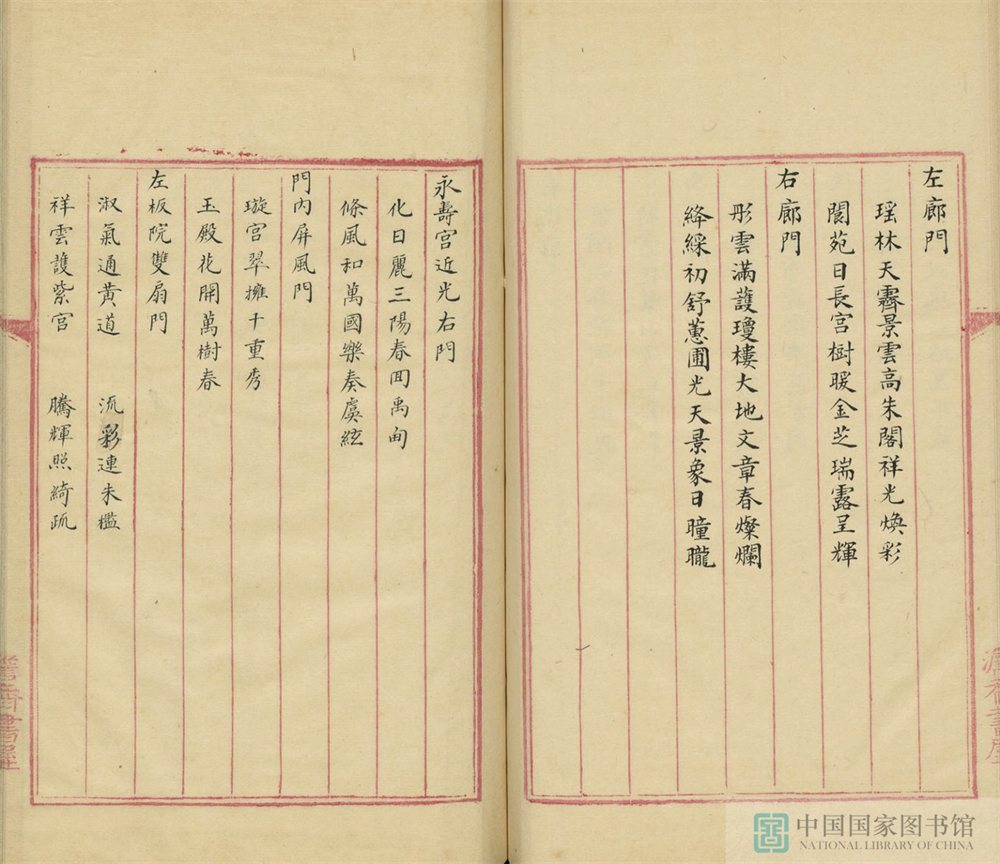 左廊門
瑶林天霽景雲高朱閣祥光煥彩
閬苑日長宫樹暖金芝瑞露呈輝
右廊門
彤雲滿護瓊樓大地文章春燦爛
絳綵初舒蕙圃光天景象日曈曨
永壽宫近光右門
化日麗三陽春囬禹甸
條風和萬國樂奏虞絃
門内屏風門
璇宫翠擁千重秀
玉殿花開萬樹春
左板院雙扇門
淑氣通黄道 流彩連朱檻
祥雲護紫宫 騰輝照綺疏
中国国家图书馆
NATIONAL LIBRARY OF CHINA